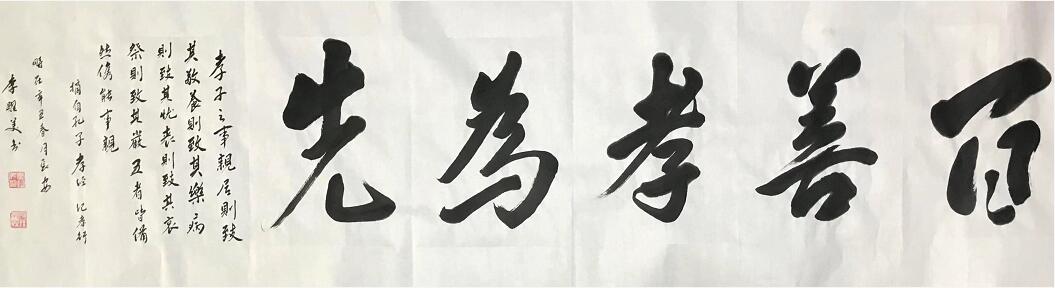 百善孝為先
孝子之事親居則致
其敬養則致其樂病
則致其忧喪則致其哀
祭則致其嚴五者皆備
然後能事親
摘自孔子孝经 记孝行
時在辛丑春月
李耀美书